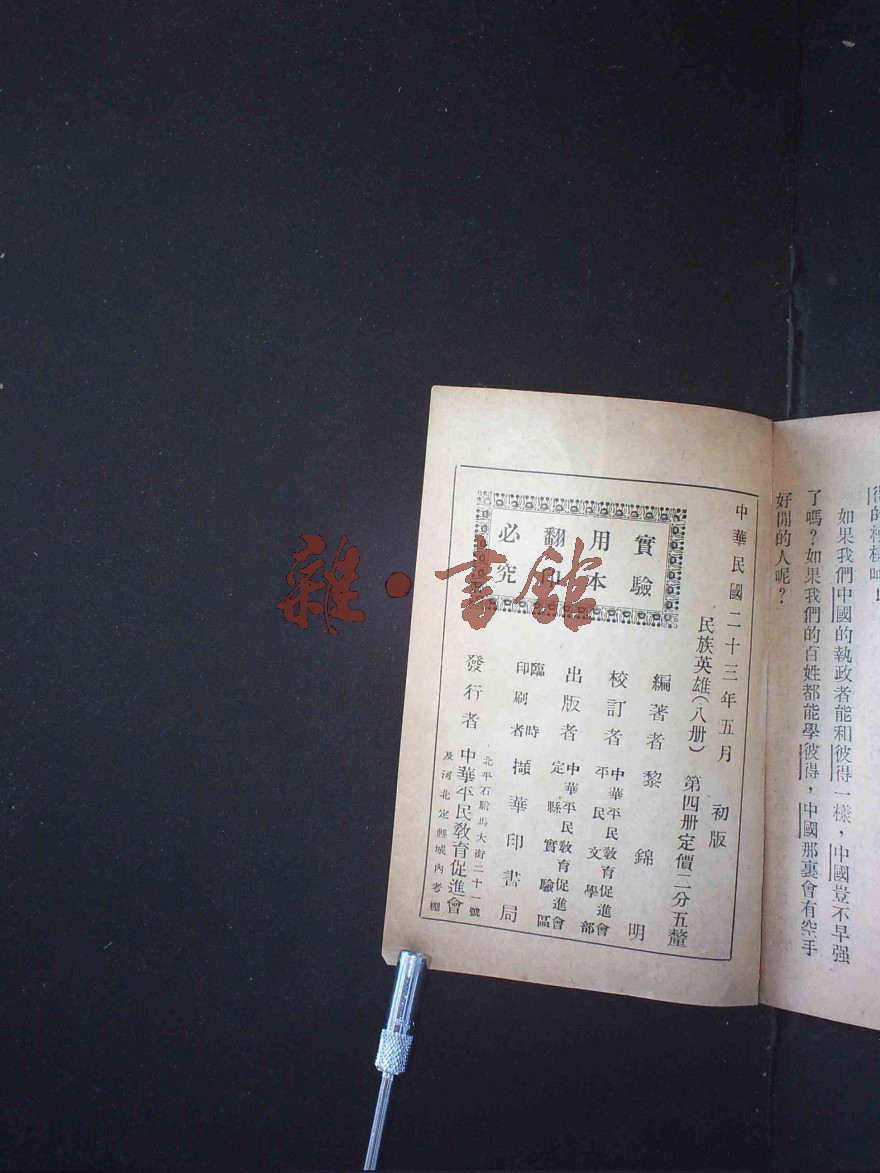 得的種樣呵！
如果我們中國的執政者能和彼得一樣，中國豈不早强
了嗎？如果我們的百姓都能學彼得，中國那裏會有空手
好閒的人呢？
中華民國二十三年五月 初版
民族英雄(八册) 第四册定價二分五釐
實驗
用本
翻印
必究
編著者 黎錦明
校訂者 中華平民教育促進會
平民文學部
出版者 中華平民教育促進會
定縣實驗區
臨時
印刷者 擷華印書局
發行者 中華平民教育促進會
北平石駙馬大街二十一號
及河北定縣城內考棚
雜·書館